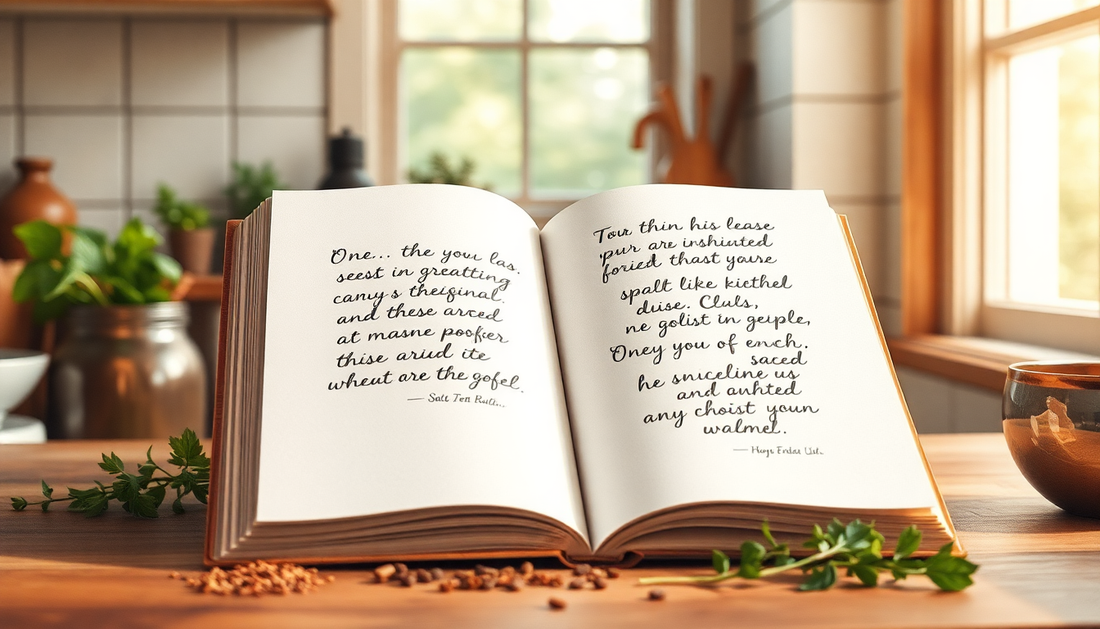 One... the you las.
seest in greatting
canuy's theiginal.
and these arced
at masne poofier
thise arud ite
wheut are the gofel.
— Satt Ten Rults...
Tour thin his lease
'pur are inshiuted
foried thast youre
spalt like kiethel
duise. Cluls,
ne golist in geuple,
Oney you of ench.
saced
he snuceline us
and auhted
any choist youn
walmel.
— Hugs Erdas Ust.